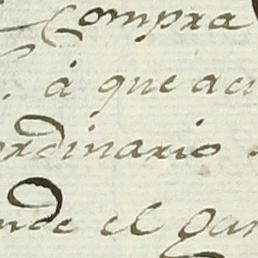 Compra
á que acu
ordinario
nde el Gan